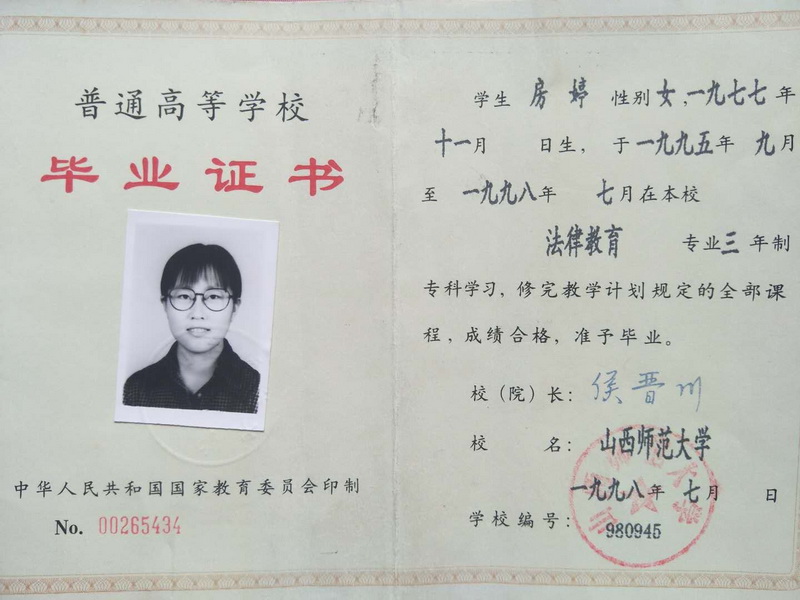 普通高等学校
毕业证书
中华人民共和国国家教育委员会印制
No. 00265434
学生 房婷 性别 女,一九七七年
十一月 日生,于一九九五年 九月
至 一九九八年 七月在本校
法律教育 专业三年制
专科学习,修完教学计划规定的全部课
程,成绩合格,准予毕业。
校(院)长: 侯晋川
校 名: 山西师范大学
一九九八年 七月 日
学校编号: 980945